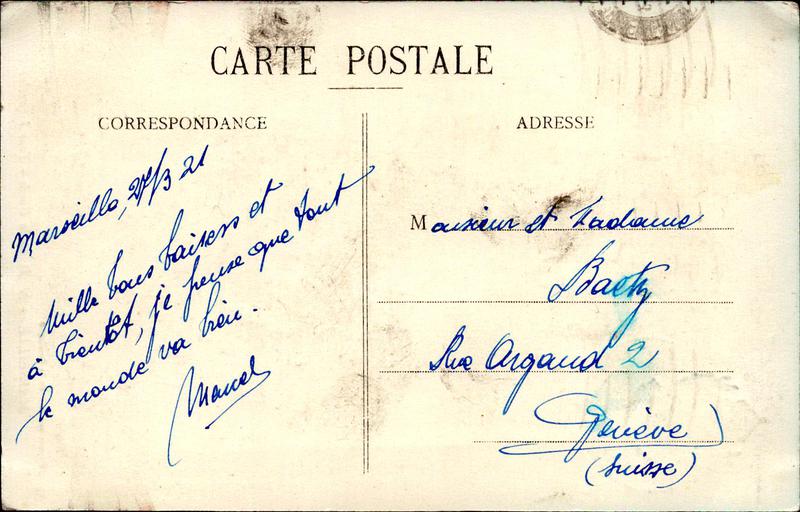 CARTE POSTALE
CORRESPONDANCE
ADRESSE
Marseille, 27/3 21
Mille bons baisers et
à bientôt, je pense que tout
le monde va bien.
Marcel
Monsieur et Madame
Baetz
Rue Argand 2
Genève
(Suisse)